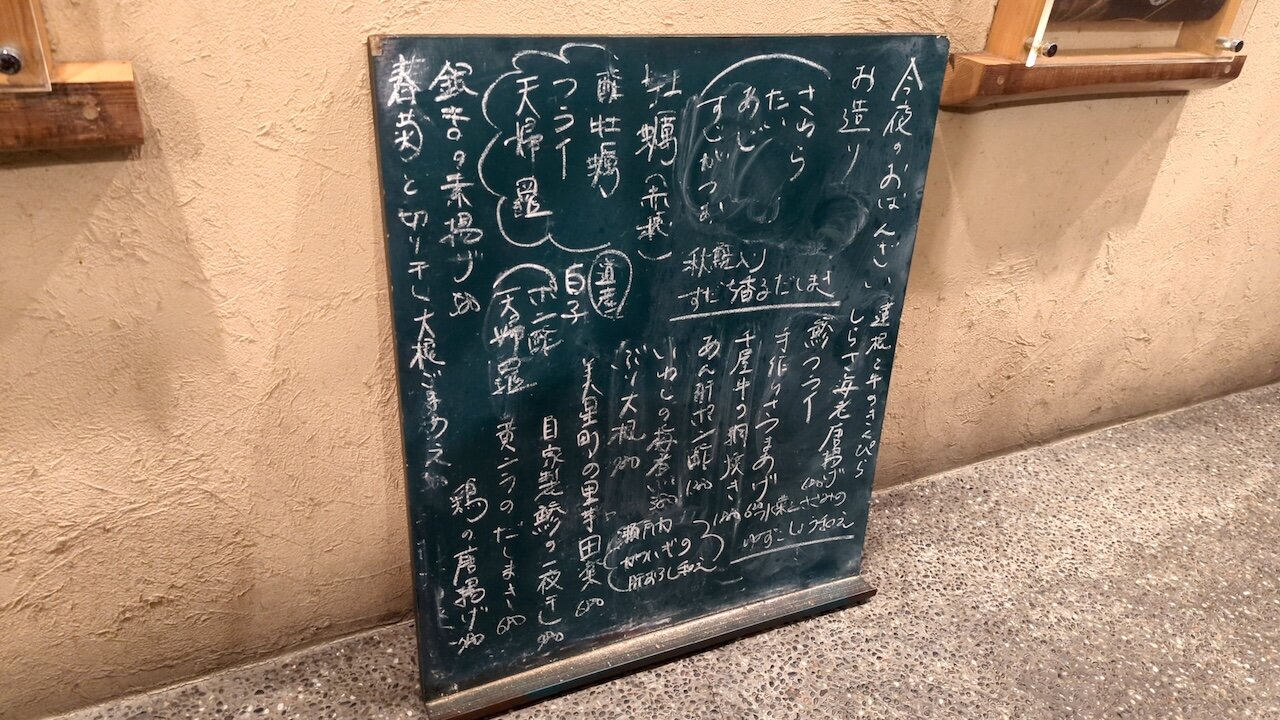 今夜のおばんざい
蓮根と牛のきんぴら
お造り
さわら
たい
あじ
すじがつお
しらさ海老唐揚げ
鯵フライ
手作りさつまあげ
水菜とささみの
ゆずこしょう和え
秋鮭入り
すだち香るだしまき
千屋牛の朝焼き
あん肝ポン酢
牡蠣(赤穂)
酢牡蠣
フライ
天婦羅
いわしの梅煮
瀬戸内
肝おろし和え
ぶり大根
道産
白子
ポン酢
天婦羅
美星町の里芋田楽 600
自家製鯵の一夜干し
黄ニラのだしまき 600
銀杏の素揚げ
鶏の唐揚げ
春菊と切り干し大根ごまあえ